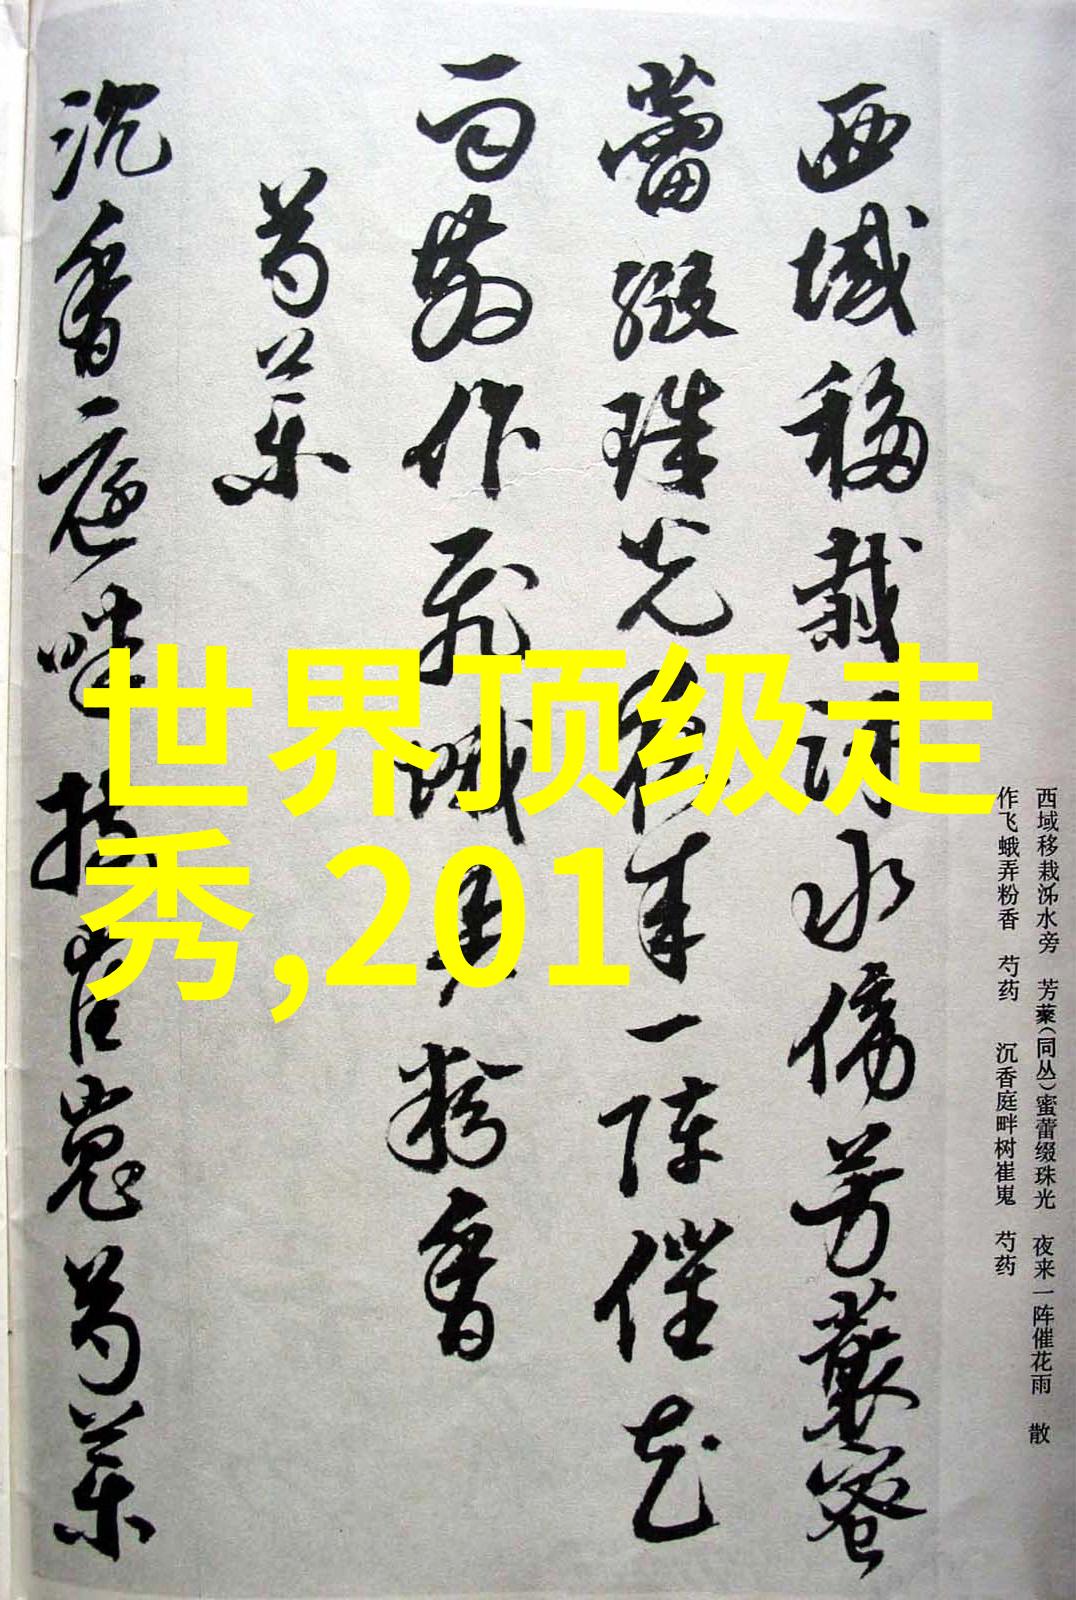 西域移栽
水傍芳藂蜜
蕾缀珠光夜来一阵催花
雨散作飞蛾弄粉香
芍药
沉香庭畔树崔嵬芍药
世界顶级走
秀,201
西域移栽泲水旁 芳藂(同丛)蜜蕾缀珠光 夜来一阵催花雨 散
作飞蛾弄粉香 芍药 沉香庭畔树崔嵬 芍药